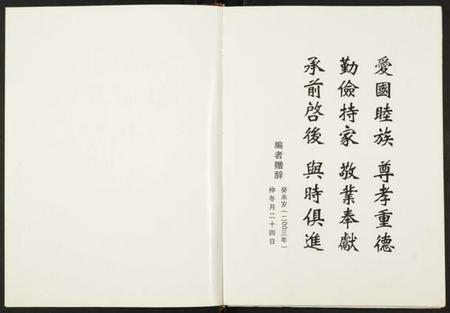 愛國睦族 尊孝重德
勤儉持家 敬業奉獻
承前啓後 與時俱進
編者赠辞
癸未岁(二00三年)
仲冬月二十四日